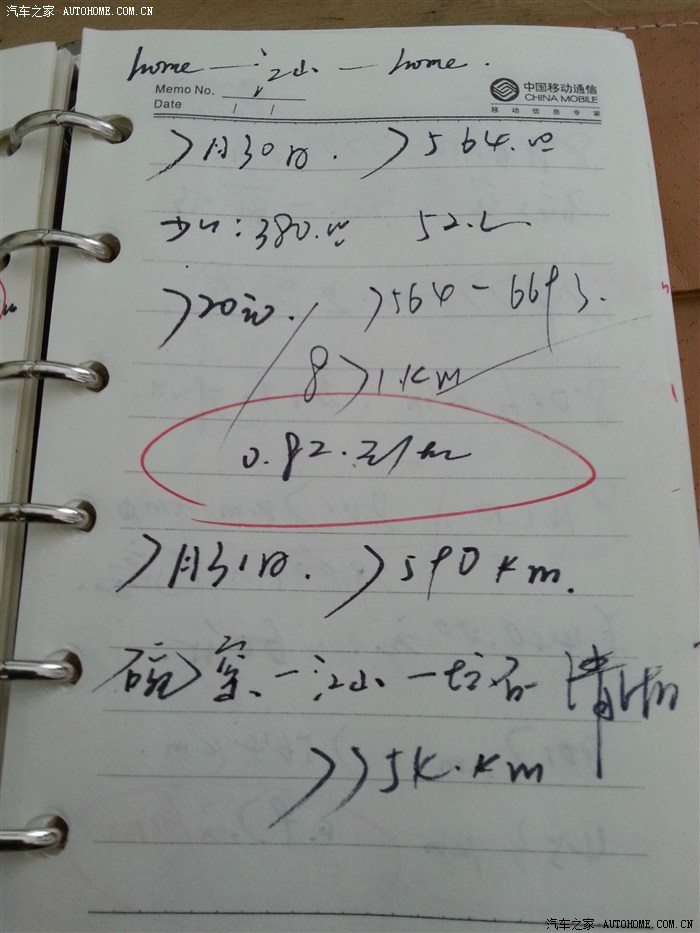 汽车之家 AUTOHOME.COM.CN
home — 江山 — home.
Memo No.
Date / /
中国移动通信
CHINA MOBILE
移动信息专家
7月30日. 7564.
380. 52.L
720 7564-6693.
871.KM
0.82.元/km
7月31日. 7590km.
窑 — 江山 —
775K.Km
汽车之家 AUTOHOME.COM.CN